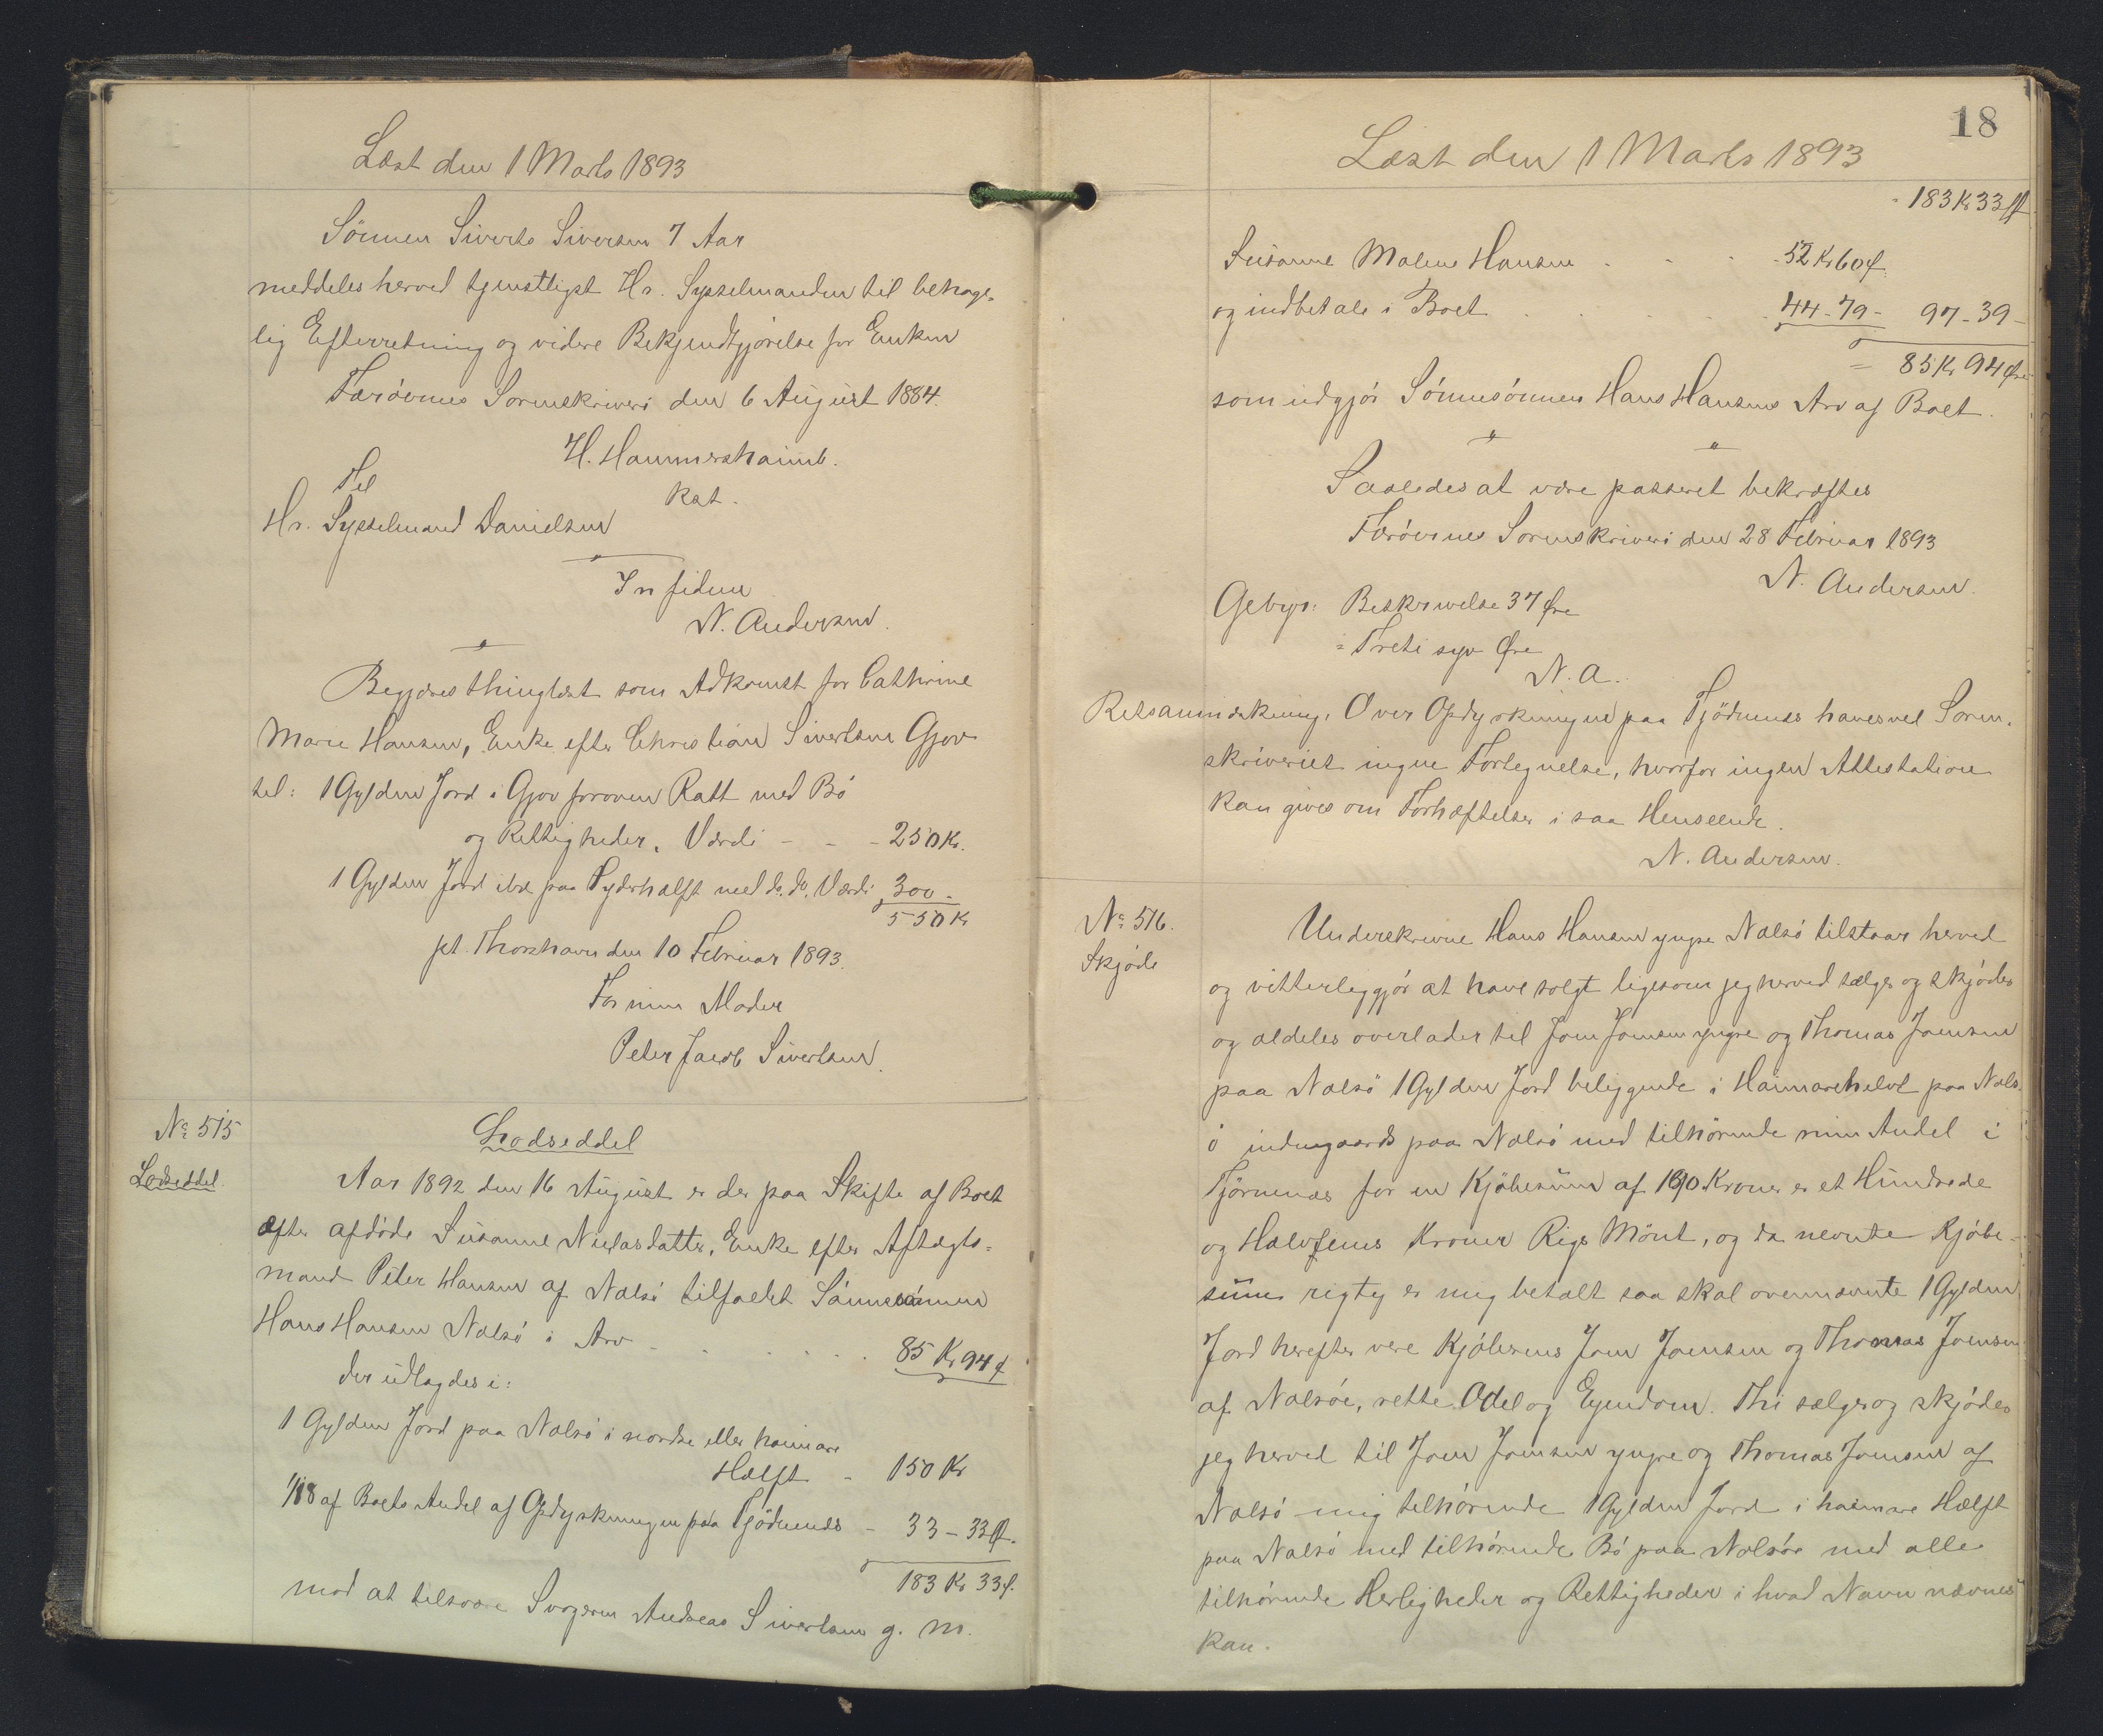 Læst den 1 Marts 1893
Sönnen Siverts Siversen 7 Aar
meddeles herved tjenstligst Hr. Sysselmanden til behage-
lig Efterretning og videre Bekjendtgjörelse for Enken
Færöernes Sorenskriveri den 6 August 1884.
H. Hammershaimb.
kst.
Til
Hr. Sysselmand Danielsen
In fidem
N. Andersen.
Begjæres thinglæst som Adkomst for Cathrine
Marie Hansen, Enke efter Christian Sivertsen Gjov
til: 1 Gylden Jord i Gjov foroven Ratt med Bö
og Rettigheder, Værdi - - - 250 Kr.
1 Gylden Jord ibd paa Tyderhælft med do. do. Værdi 300 -
550 Kr
pt. Thorshavn den 10 Februar 1893.
For min Moder
Peter Jacob Sivertsen.
No. 515
Lodseddel.
Lodseddel
Aar 1892 den 16 August er der paa Skifte af Boet
efter afdöde Susanne Nielasdatter, Enke efter Aftægts-
mand Peter Hansen af Nalsö tilfaldet Sönnesönnen
Hans Hansen Nalsö i Arv - . . . . . 85 Kr 94 ø
der udlagdes i:
1 Gylden Jord paa Nalsö i nordre eller haimare
Hælft - 150 Kr
1/18 af Boets Andel af Opdyrkningen paa Tjödnenæs - 33 - 33 Ø.
183 Kr 33 ø.
mod at tilsvare Svogeren Andreas Sivertsens g. M.
18
Læst den 1 Marts 1893
183 K 33 Ø
Susanne Malene Hansen - - - - 52 Kr 60 ø.
og indbetale i Boet . . . . . 44 - 79 - 97 - 39 -
= 85 Kr 94 Øre
som udgjör Sönnesönnen Hans Hansens Arv af Boet.
Saaledes at være passeret bekræftes
Færöernes Sorenskriveri den 28 Februar 1893
N. Andersen.
Gebyr: Beskrivelse 37 Øre
= Treti syv Øre
N. A.
Retsanmærkning: Over Opdyrkningen paa Tjödnenæs haves ved Soren-
skriveriet ingen Fortegnelse, hvorfor ingen Attestation
kan gives om Forhæftelser i saa Henseende.
N. Andersen.
No. 516.
Skjöde
Underskrevne Hans Hansen yngre Nalsö tilstaar herved
og vitterliggjör at have solgt ligesom jeg herved sælger og skjöder
og aldeles overlader til Joen Joensen yngre og Thomas Joensen
paa Nalsö 1 Gylden Jord beliggende i Haimarehelvt paa Nals-
ö indengaards paa Nalsö med tilhörende min Andel i
Tjörnenæs for en Kjöbesum af 190 Kroner er et Hundrede
og Halvfems Kroner Rigs Mönt, og da nevnte Kjöbe-
sum rigtig er mig betalt saa skal ovennævnte 1 Gylden
Jord herefter vere Kjöberens Joen Joensen og Thomas Joensen
af Nalsöe, rette Odel og Eyendom. Thi sælger og skjöder
jeg herved til Joen Joensen yngre og Thomas Joensen af
Nalsö mig tilhörende 1 Gylden Jord i haimare Hælft
paa Nalsö med tilhörende Bö paa Nolsöe med alle
tilhörende Herligheder og Rettigheder i hvad Navn nævnes
kan.